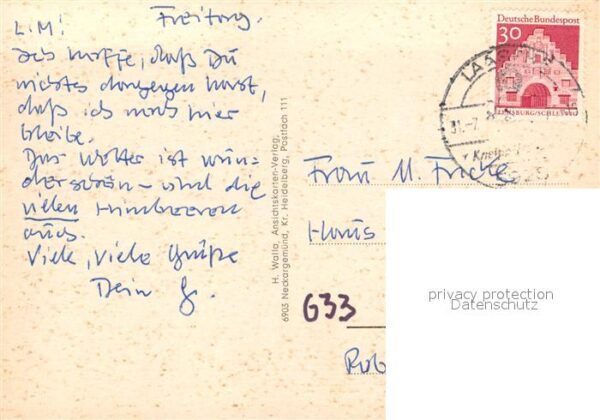 Freitag.
L.M!
Ich hoffe, daß Du
nichts dagegen hast,
daß ich noch hier
bleibe.
Das Wetter ist wun-
derschön – und die
vielen Himbeeren
auch.
Viele, viele Grüße
Dein G.
H. Walla, Ansichtskarten-Verlag,
6903 Neckargemünd, Kr. Heidelberg, Postfach 111
Deutsche Bundespost
30
FLENSBURG/SCHLESWIG
31.-7.
Frau M. Fricke
Haus
633
Rob
privacy protection
Datenschutz